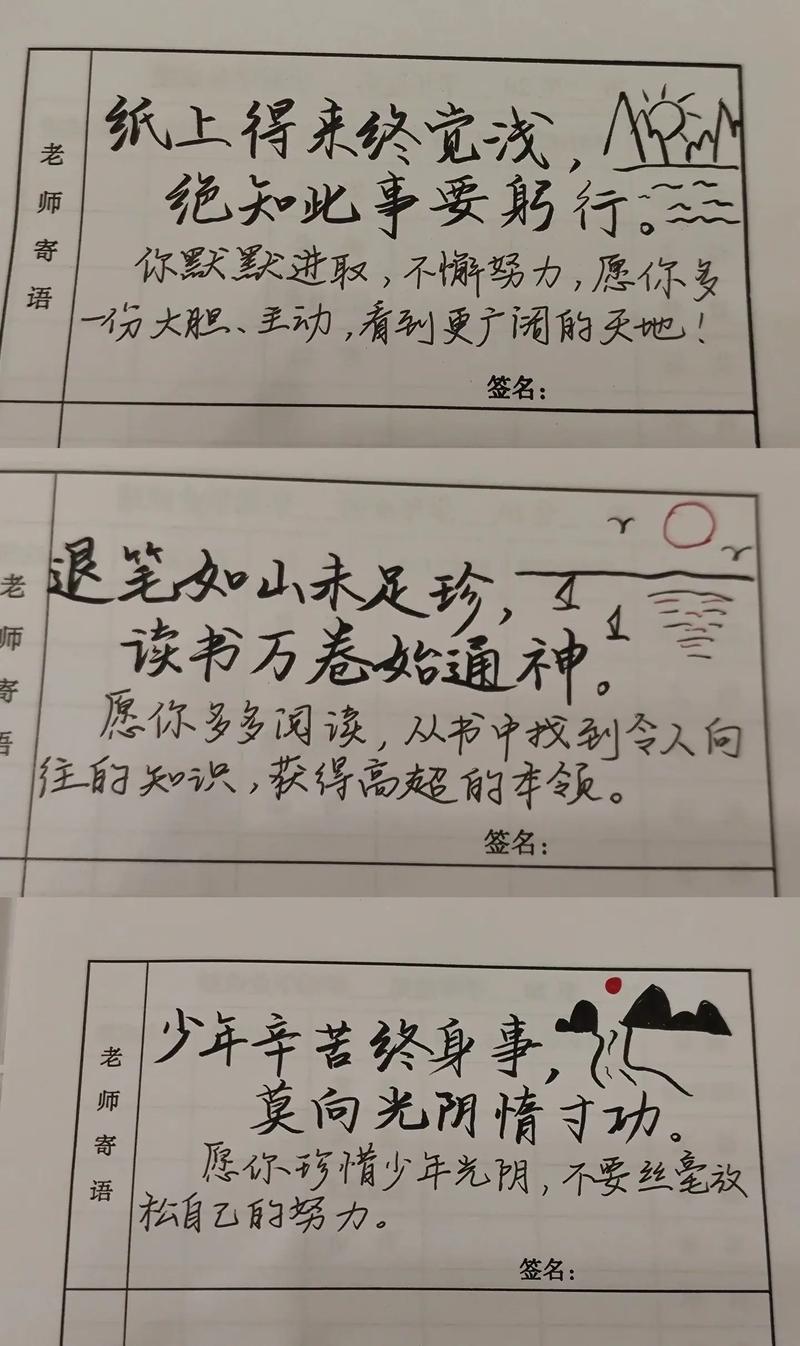 老师寄语
纸上得来终觉浅，
绝知此事要躬行。
你默默进取，不懈努力，愿你多
一份大胆、主动，看到更广阔的天地！
签名：
老师寄语
退笔如山未足珍，
读书万卷始通神。
愿你多多阅读，从书中找到令人向
往的知识，获得高超的本领。
签名：
老师寄语
少年辛苦终身事，
莫向光阴惰寸功。
愿你珍惜少年光阴，不要丝毫放
松自己的努力。
签名：